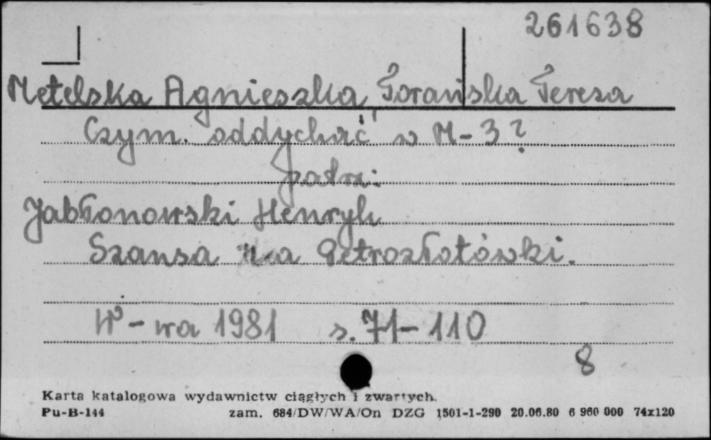 261638
Metelska Agnieszka, Torańska Teresa
Czym. oddychać w M-3?
patrz:
Jabłonowski Henryk
Szansa na Petrozłotówki.
W-wa 1981 s. 71-110
8
Karta katalogowa wydawnictw ciągłych i zwartych.
Pu-B-144 zam. 684/DW/WA/On DZG 1501-1-290 20.06.80 6 960 000 74x120